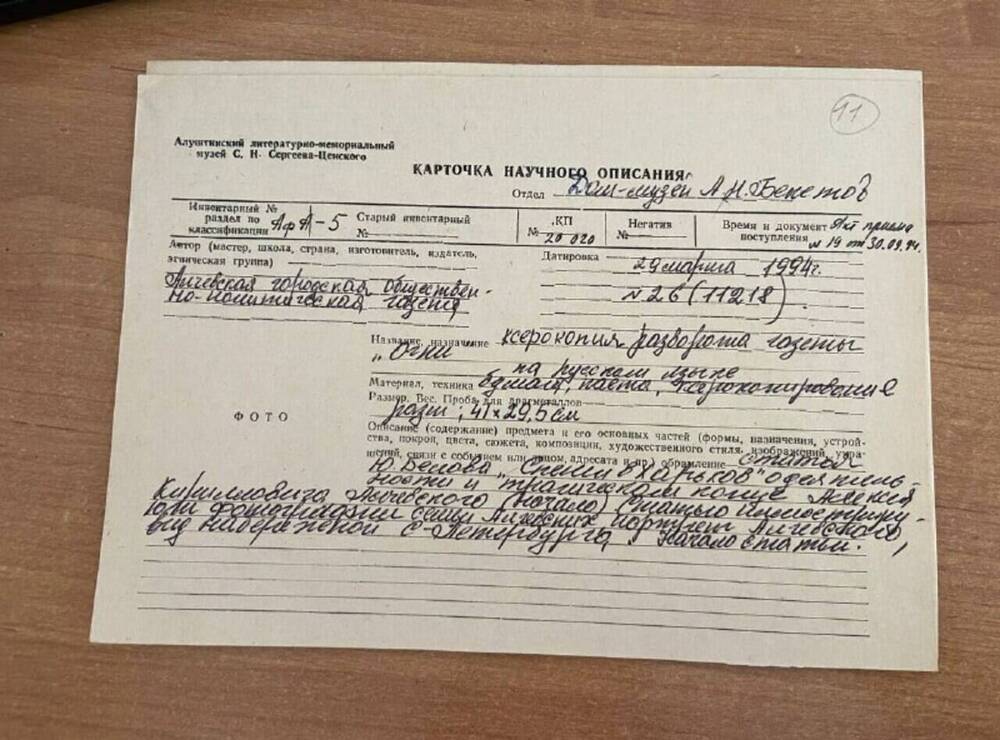 11
Алуштинский литературно-мемориальный
музей С. Н. Сергеева-Ценского
КАРТОЧКА НАУЧНОГО ОПИСАНИЯ
Отдел Дом-музей А.Н.Бекетов
Инвентарный №
раздел по
классификации АфА-5
Старый инвентарный
№
КП
№ 20 020
Негатив
№
Время и документ Акт приема
поступления N 19 от 30.09.94.
Автор (мастер, школа, страна, изготовитель, издатель,
этническая группа)
Датировка 29 марта 1994г.
N 26 (11218)
Алчевская городская обществен-
но-политическая газета
Название, назначение ксерокопия разворота газеты
"Огни
на русском языке
Материал, техника бумага, паста, ксерокопирование
Размер. Вес. Проба для драгметаллов
разм; 41 х 29,5 см
ФОТО
Описание (содержание) предмета и его основных частей (формы, назначения, устрой-
ства, покроя, цвета, сюжета, композиции, художественного стиля, изображений, укра-
шений, связи с событием или лицом, адресата и пр.) обрамление статья
Ю.Белова "Спешил в Харьков" о деятель-
ности и трагическом конце Алексея
Кирилловича Алчевского (начало) статью иллюстриру-
ют фотографии семьи Алчевских портрет Алчевского,
вид набережной С-Петербурга, Начало статьи.